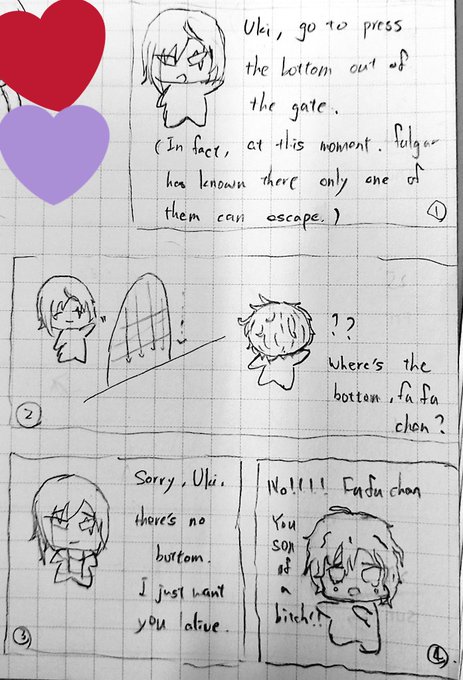 Uki, go to press
the bottom out of
the gate.
(In fact, at this moment. fulgur
has known there only one of
them can escape.)
①
②
??
where's the
bottom, fa fa
chan?
Sorry, Uki.
there's no
bottom.
I just want
you alive.
③
No!!!! Fafa chan
You
son
of
a
bitch!!
④